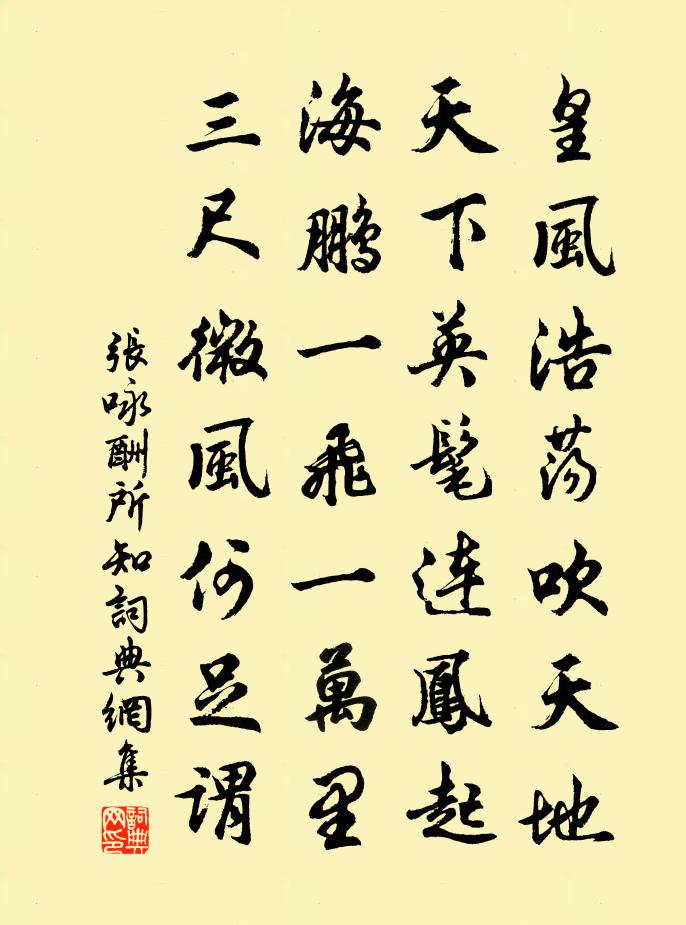 皇風浩荡吹天地
天下英髦連鳳起
海鵬一飛一萬里
三尺微風何足謂
張咏酬所知詞典網集
詞典网印